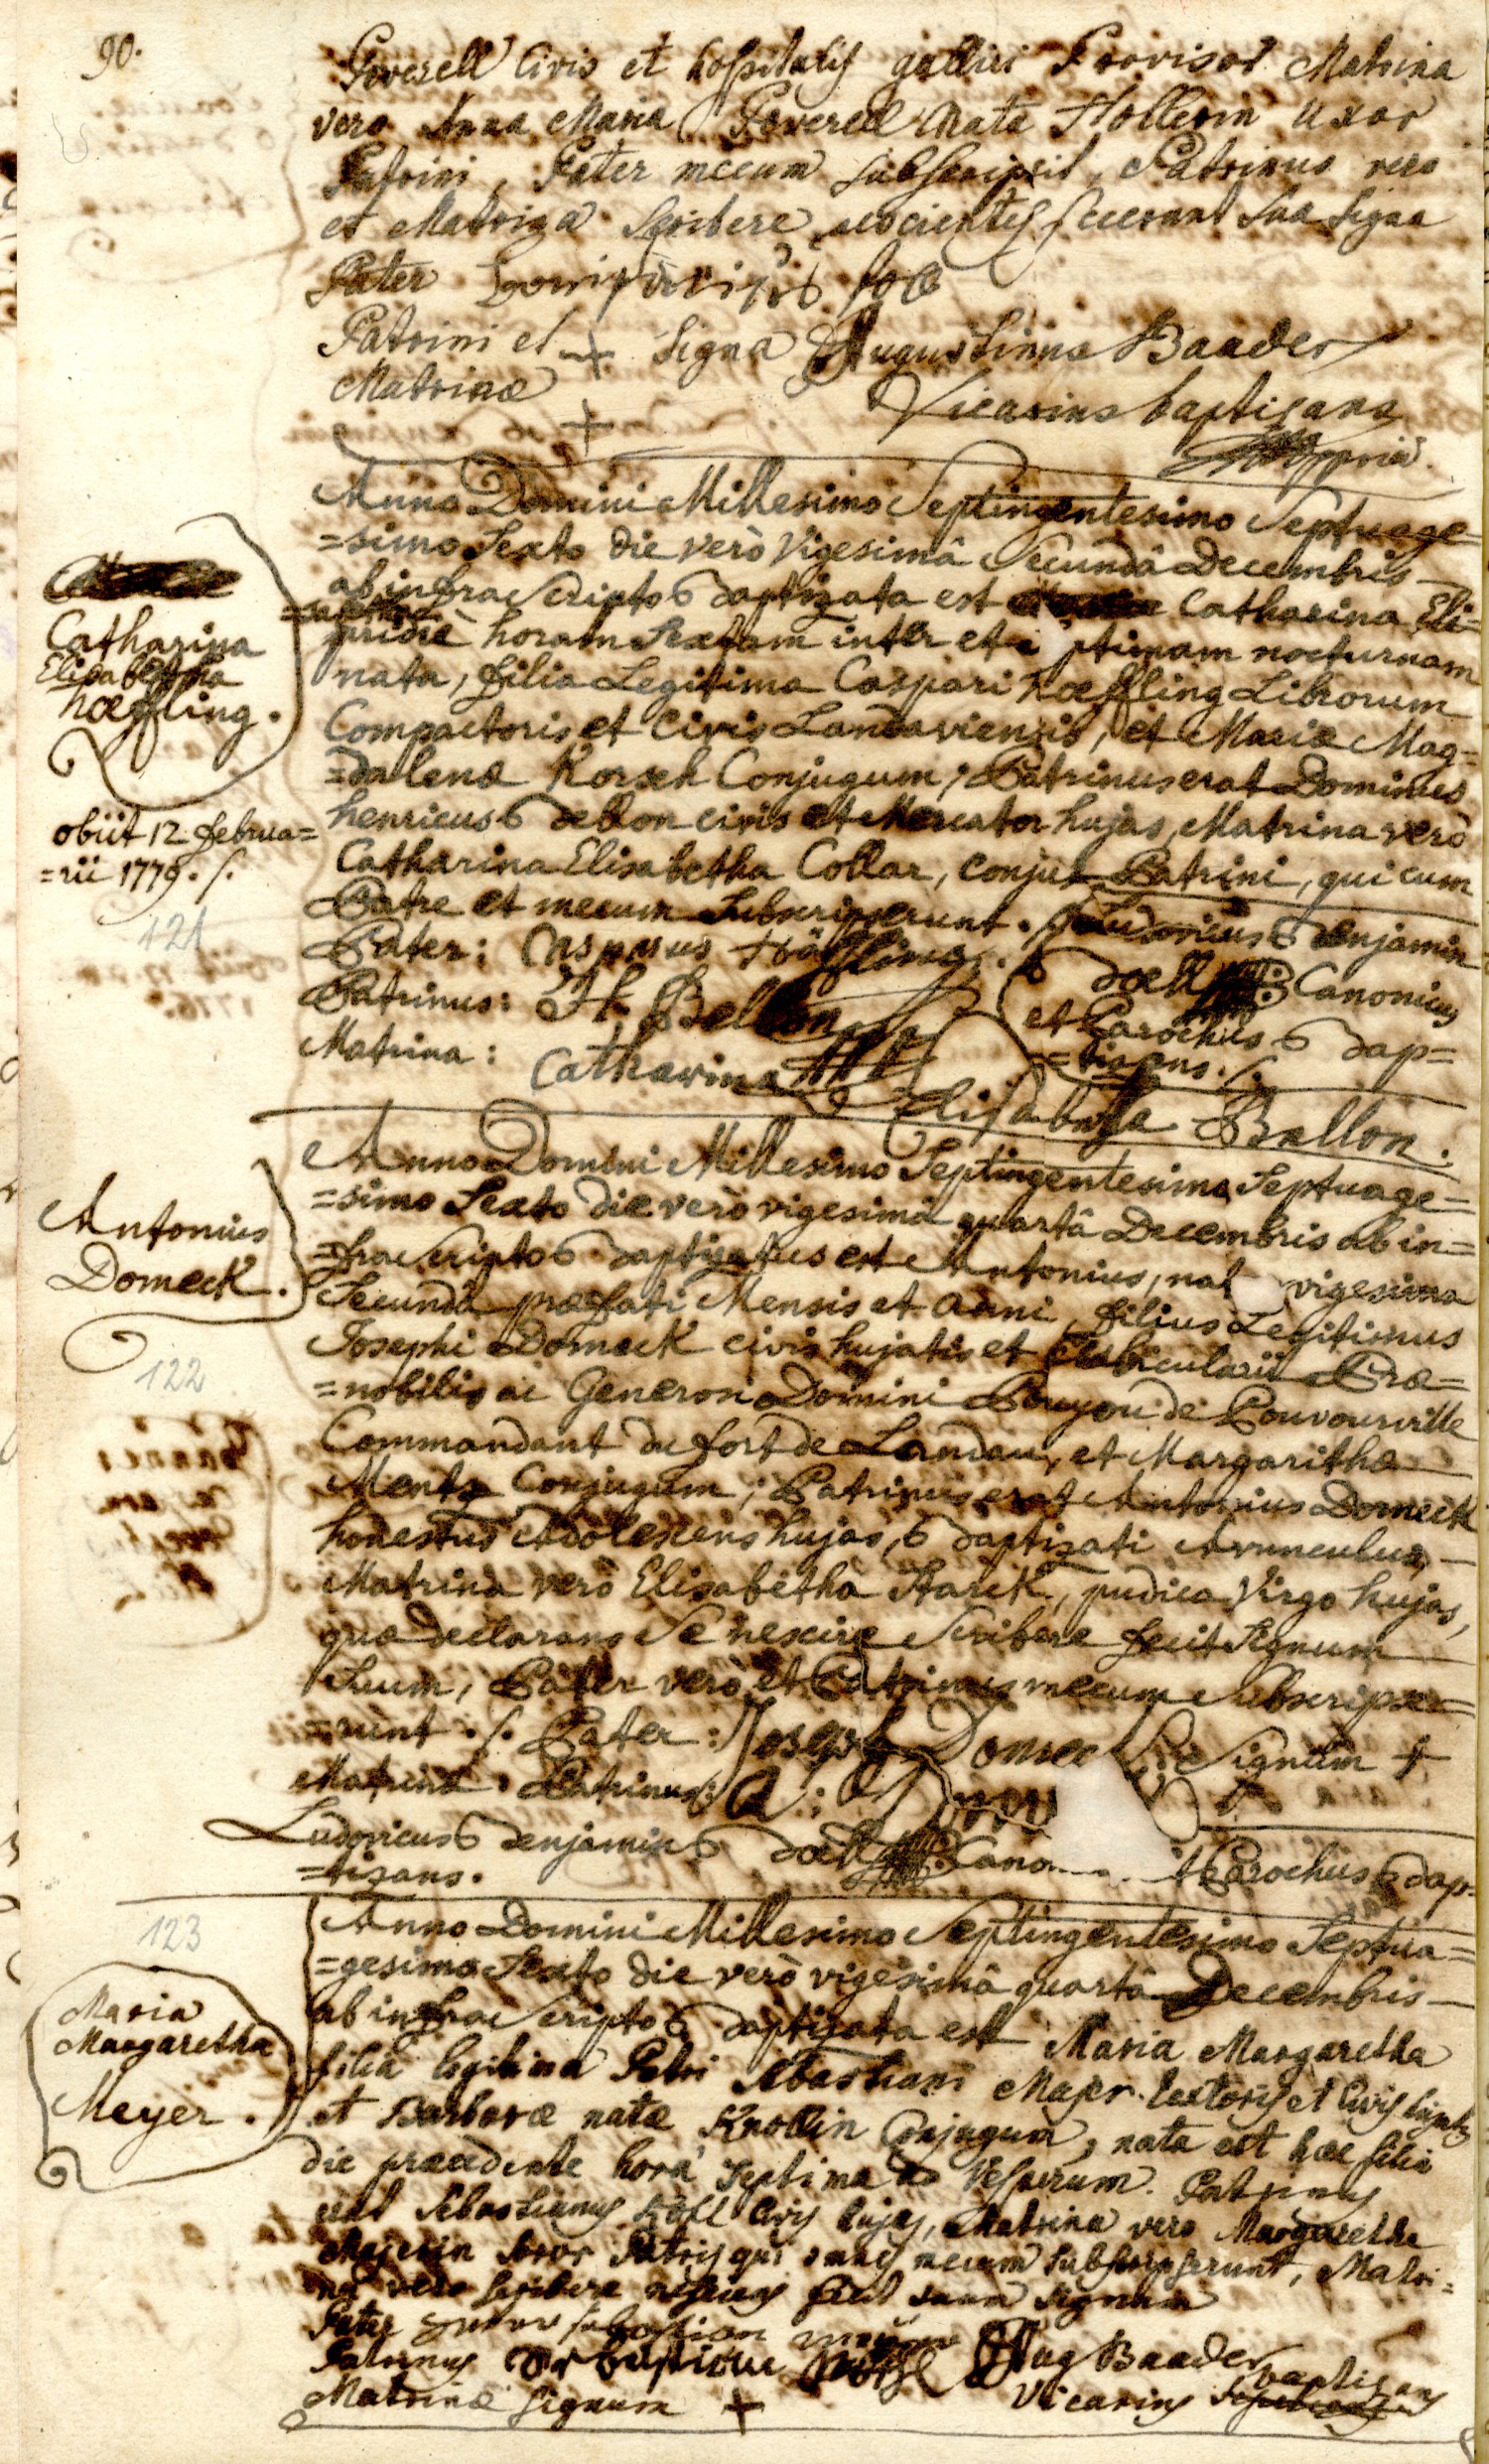 90.
Poverell Civis et hospitalis gallici Provisor Matrina
vero Anna Maria Poverell nata Hollerin uxor
Patrini, Pater mecum subscripsit, Patrinus vero
et Matrina scribere nescientes fecerunt sua signa
Pater
Patrini et + Signa Augustinus Baader
Matrinæ + Vicarius baptizans
Anno Domini Millesimo Septingentesimo Septuage-
=simo Sexto die verò Vigesimâ Secundâ Decembris
ab infrascripto Baptizata est Catharina Eli-
=sabetha
pridiè horam Sextam inter et ptimam nocturnam
nata, filia Legitima Caspari hœffling Librorum
Compactoris et Civis Landaviensis, et Mariæ Mag-
=dalenæ Korseh Conjugum; Patrinus erat Dominus
henricus Bellon civis et Mercator hujas, Matrina verò
Catharina Elisabetha Collar, conjux Patrini, qui cum
Patre et mecum Subscripserunt. Ludovicus Benjamin
Pater: Casparus Höffling. Doell Canonicus
Patrinus: H. Bellon et Parochus Bap=
Matrina: Catharina =tizans.
Elisabetha Bellon.
Catharina
Elisabetha
hœffling.
obiit 12 februa=
=rii 1779.
121
Anno Domini Millesimo Septingentesimo Septuage=
=simo Sexto die verò vigesimâ quartâ Decembris ab in=
=frascripto Baptizatus est Antonius, nat vigesima
Secundâ præfati Mensis et anni, filius Legitimus
Josephi Domeck civis hujatis et Cubicularii Præ=
=nobilis ac Generosi Domini Bouyou de Pouvourville
Commandant du fort de Landau, et Margarithæ
Mentz Conjugum; Patrinus erat Antonius Domeck
honestus Adolescens hujas, Baptizati Avunculus,
Matrina verò Elisabetha Starck, pudica Virgo hujas,
quæ declarans Se nescire Scribere fecit Signum
Suum, Pater verò et Patrinus mecum Subscripse=
=runt. Pater: Joseph Domeck Signum +
Matrinæ. Patrinus: A:
Ludovicus Benjamin Doell Cano Parochus Bap=
=tizans.
Antonius
Domeck.
122
Anno Domini Millesimo Septingentesimo Septua=
=gesimo Sexto die verò vigesimâ quartâ Decembris
ab infrascripto Baptizata est Maria Margaretha
filia legitima Petri Sebastiani Majer textoris et Civis hujatis
et Barbaræ natæ Knollin Conjugum, nata est hæc filia
die præcedente horâ septima ad Vesperum. Patrinus
erat Sebastianus Civis hujas, Matrina vero Margaretha
Majerin soror Patris qui omnes mecum subscripserunt, Matri=
na vero scribere nesciens fecit suum signum
Pater
Patrinus Aug Baader baptizans
Matrinæ signum + Vicarius
123
Maria
Margaretha
Meyer.